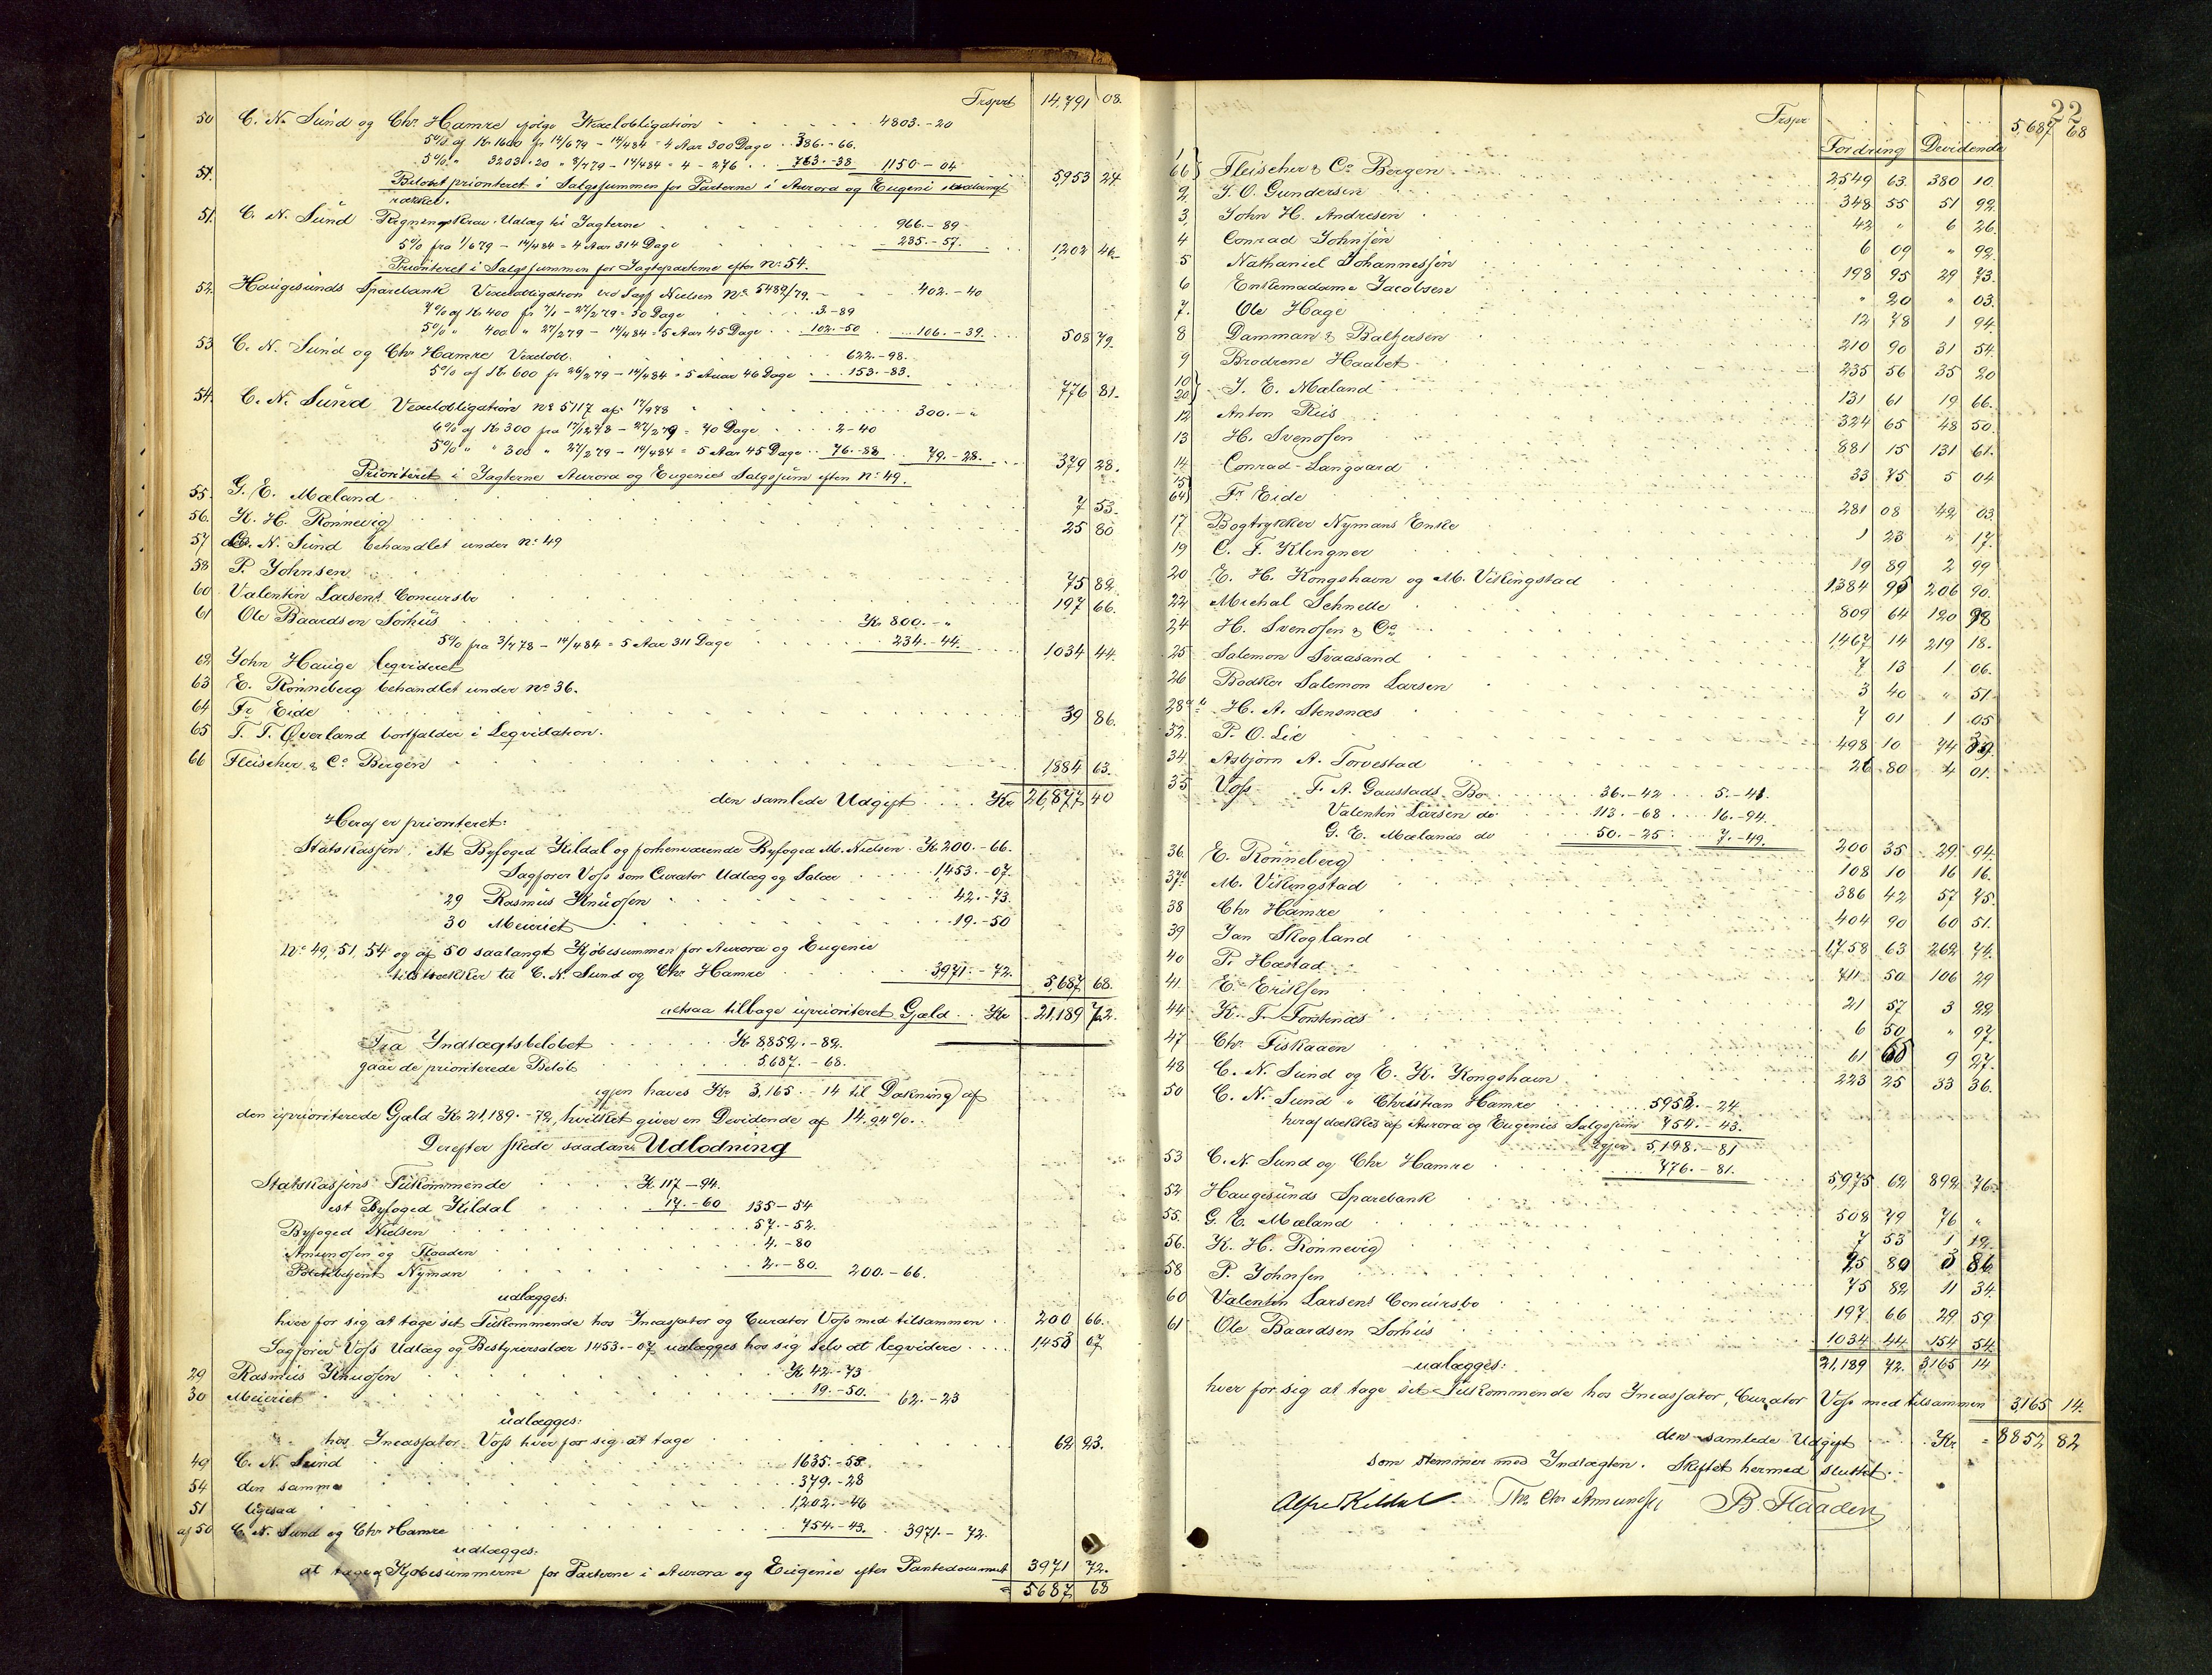 Trsprt 14,791 08.
50 C. N. Sund og Chr. Hamre ifølge Vexelobligation 4803.-20
5% af Kr 1600 fr 14/679 - 14/484 = 4 Aar 300 Dage 386.-66.
5% " 3203.20 " 8/779 - 14/484 = 4 - 276 763.-38 1150-04 5,953 24.
51. Beløbet prioriteret i Salgssummen for Parterne i Aurora og Eugeni saalangt
rækker.
51. C. N. Sund Regningskrav. Udlæg til Jagterne 966-89
5% fra 1/679 - 14/484 = 4 Aar 314 Dage 235.-57. 1,202 46
Prioriteret i Salgssummen for Jagteparterne efter No 54.
52. Haugesunds Sparebank Vexelobligation ved Sagf Nielsen No 5482/79. 402.-40
7% af Kr 400 fr 7/1 - 27/279 = 50 Dage 3.-89
5% " 400 " 27/279 - 14/484 = 5 Aar 45 Dage 102.-50 106.-39. 508 79.
53 C. N. Sund og Chr Hamre Vexelobl. 622.-98.
5% af Kr 600 fr 26/279 - 14/484 = 5 Aar 46 Dage 153.-83. 776 81.
54. C. N. Sund Vexelobligation No 5117 af 17/978 300.-"
6% af Kr 300 fra 17/1278 - 27/279 = 70 Dage 2-40
5% " " 300 " 27/279 - 14/484 = 5 Aar 45 Dage 76.-88 79.-28. 379 28.
Prioriteret i Jagterne Aurora og Eugenies Salgssum efter No 49.
55. G. E. Mæland 7 53.
56. K. H. Rønnevig 25 80
57 C. N. Sund behandlet under No 49
58 P. Johnsen 75 82.
60 Valentin Larsens Concursbo 197 66.
61 Ole Baardsen Sørhus Kr 800.-"
5% fra 3/778 - 14/484 = 5 Aar 311 Dage 234.-44. 1034 44.
62 John Hauge leqvideret
63 E. Rønneberg behandlet under No 36.
64 Fr Eide 39 86.
65 T. T. Øverland bortfalder i Leqvidation.
66 Fleischer & Co Bergen 1884 63.
den samlede Udgift Kr 26,877 40
Heraf er prioriteret:
Statskassen, est Byfoged Kildal og forhenværende Byfoged M. Nielsen Kr 200.-66.
Sagfører Voss som Curator Udlæg og Salær 1,453.-07.
29 Rasmus Knudsen 42.-73.
30 Meieriet 19.-50
No 49, 51, 54 og af 50 saalangt Kjøbesummen for Aurora og Eugenie
tilstrækker til C. N. Sund og Chr Hamre 3971.-72. 5,687 68.
altsaa tilbage uprioriteret Gjæld Kr 21,189 72.
Fra Indtægtsbeløbet Kr 8852.-82.
gaar de prioriterede Beløb 5,687.-68.
igjen haves Kr 3,165.-14 til Dækning af
den uprioriterede Gjæld Kr 21,189.-72, hvilket giver en Devidende af 14.94%.
Derefter skede saadan Udlodning
Statskassens Tilkommende Kr 117-94.
est Byfoged Kildal 17.-60 135-54
Byfoged Nielsen 57.-52.
Amundsen og Flaaden 4.-80
Politibetjent Nyman 2.-80. 200.-66.
udlægges:
hver for sig at tage sit Tilkommende hos Incassator og Curator Voss med tilsammen 200 66.
Sagfører Voss Udlæg og Bestyrersalær 1453.-07 udlægges hos sig selv at leqvidere 1453 07
29 Rasmus Knudsen Kr 42-73
30 Meieriet 19.-50. 62.-23
udlægges:
hos Incassator Voss hver for sig at tage 62 23.
49 C. N. Sund 1635.-55.
54 den samme 379.-28
51 ligesaa 1,202.-46
af 50 C. N. Sund og Chr Hamre 754.-43. 3971.-72.
udlægges:
at tage af Kjøbesummerne for Parterne i Aurora og Eugenie efter Pantedocument 3971 72.
5687 68
22
Trspr 5,687 68
Fordring Devidende
1 66} Fleischer & Co Bergen 2549 63. 380 10.
2. J. O. Gundersen 348 55 51 92.
3. John H. Andresen 42 " 6 26.
4 Conrad Johnsen 6 09 " 92.
5 Nathaniel Johannessen 198 95 29 73.
6 Enkemadame Jacobsen " 20 " 03.
7. Ole Hage 12 78 1 94.
8 Damman & Baltzersen 210 90 31 54.
9 Brødrene Haabet 235 56 35 20
10 20} J. E. Mæland 131 61 19 66.
12 Anton Riis 324 65 48 50.
13 H. Svendsen 881 15 131 61.
14 Conrad Langaard 33 75 5 04
15 64} Fr Eide 281 08 42 03.
17 Bogtrykker Nymans Enke 1 23 " 17.
19 C. F. Klingner 19 89 2 99
20 E. H. Kongshavn og M. Vikingstad 1384 95 206 90.
22 Michal Schnelle 809 64 120 98
24 H. Svendsen & Co 1,467 14 219 18.
25 Salemon Svaasand 7 13 1 06.
26 Bødker Salemon Larsen 3 40 " 51
28 H. A. Stensnæs 7 01 1 05
32. P. O. Lie 498 10 74 39.
34 Asbjørn A. Torvestad 26 80 4 01.
35 Voss F. A. Gaustads Bo 36.-42 5.-41.
Valentin Larsen do 113.-68 16.-94.
G. E. Mælands do 50.-25 7.-49. 200 35 29 94.
36. E. Rønneberg 108 10 16 16.
37 M. Vikingstad 386 42 57 75.
38 Chr Hamre 404 90 60 51.
39 Jan Skogland 1,758 63 262 74.
40 P. Hæstad 711 50 106 29
41. E. Eriksen 21 57 3 22
44 K. T. Torstenæs 6 50 " 97.
47 Chr Fiskaaen 61 65 9 27.
48 C. N. Sund og E. K. Kongshavn 223 25 33 36.
50 C. N. Sund " Christian Hamre 5953.-24.
heraf dækkes af Aurora og Eugenies Salgssum 754.-43.
igjen 5,198.-81
53 C. N. Sund og Chr Hamre 776.-81. 5,975 62 892 76
52 Haugesunds Sparebank 508 79 76 "
55. G. E. Mæland 7 53 1 12.
56. K. H. Rønnevig 25 80 3 86.
58 P. Johnsen 75 82 11 34.
60 Valentin Larsens Concursbo 197 66 29 59.
61 Ole Baardsen Sørhus 1034 44 154 54.
udlægges: 21,189 72. 3,165 14
hver for sig at tage sit Tilkommende hos Incassator, Curator Voss med tilsammen 3,165 14.
den samlede Udgift Kr = 8852 82
som stemmer med Indtægten. Skiftet hermed sluttet.
Alfr Kildal Ths. Chr Amundsen B. Flaaden